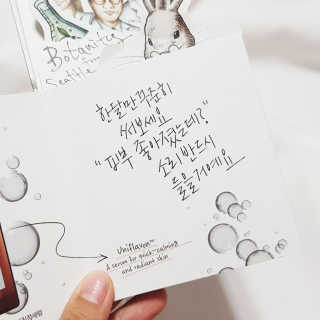 Botanity
from
Seattle
한달만 꾸준히
써보세요
"피부 좋아졌는데?"
소리 반드시
들을거예요
Uniflavon™
A serum for quick-calming
and radiant skin